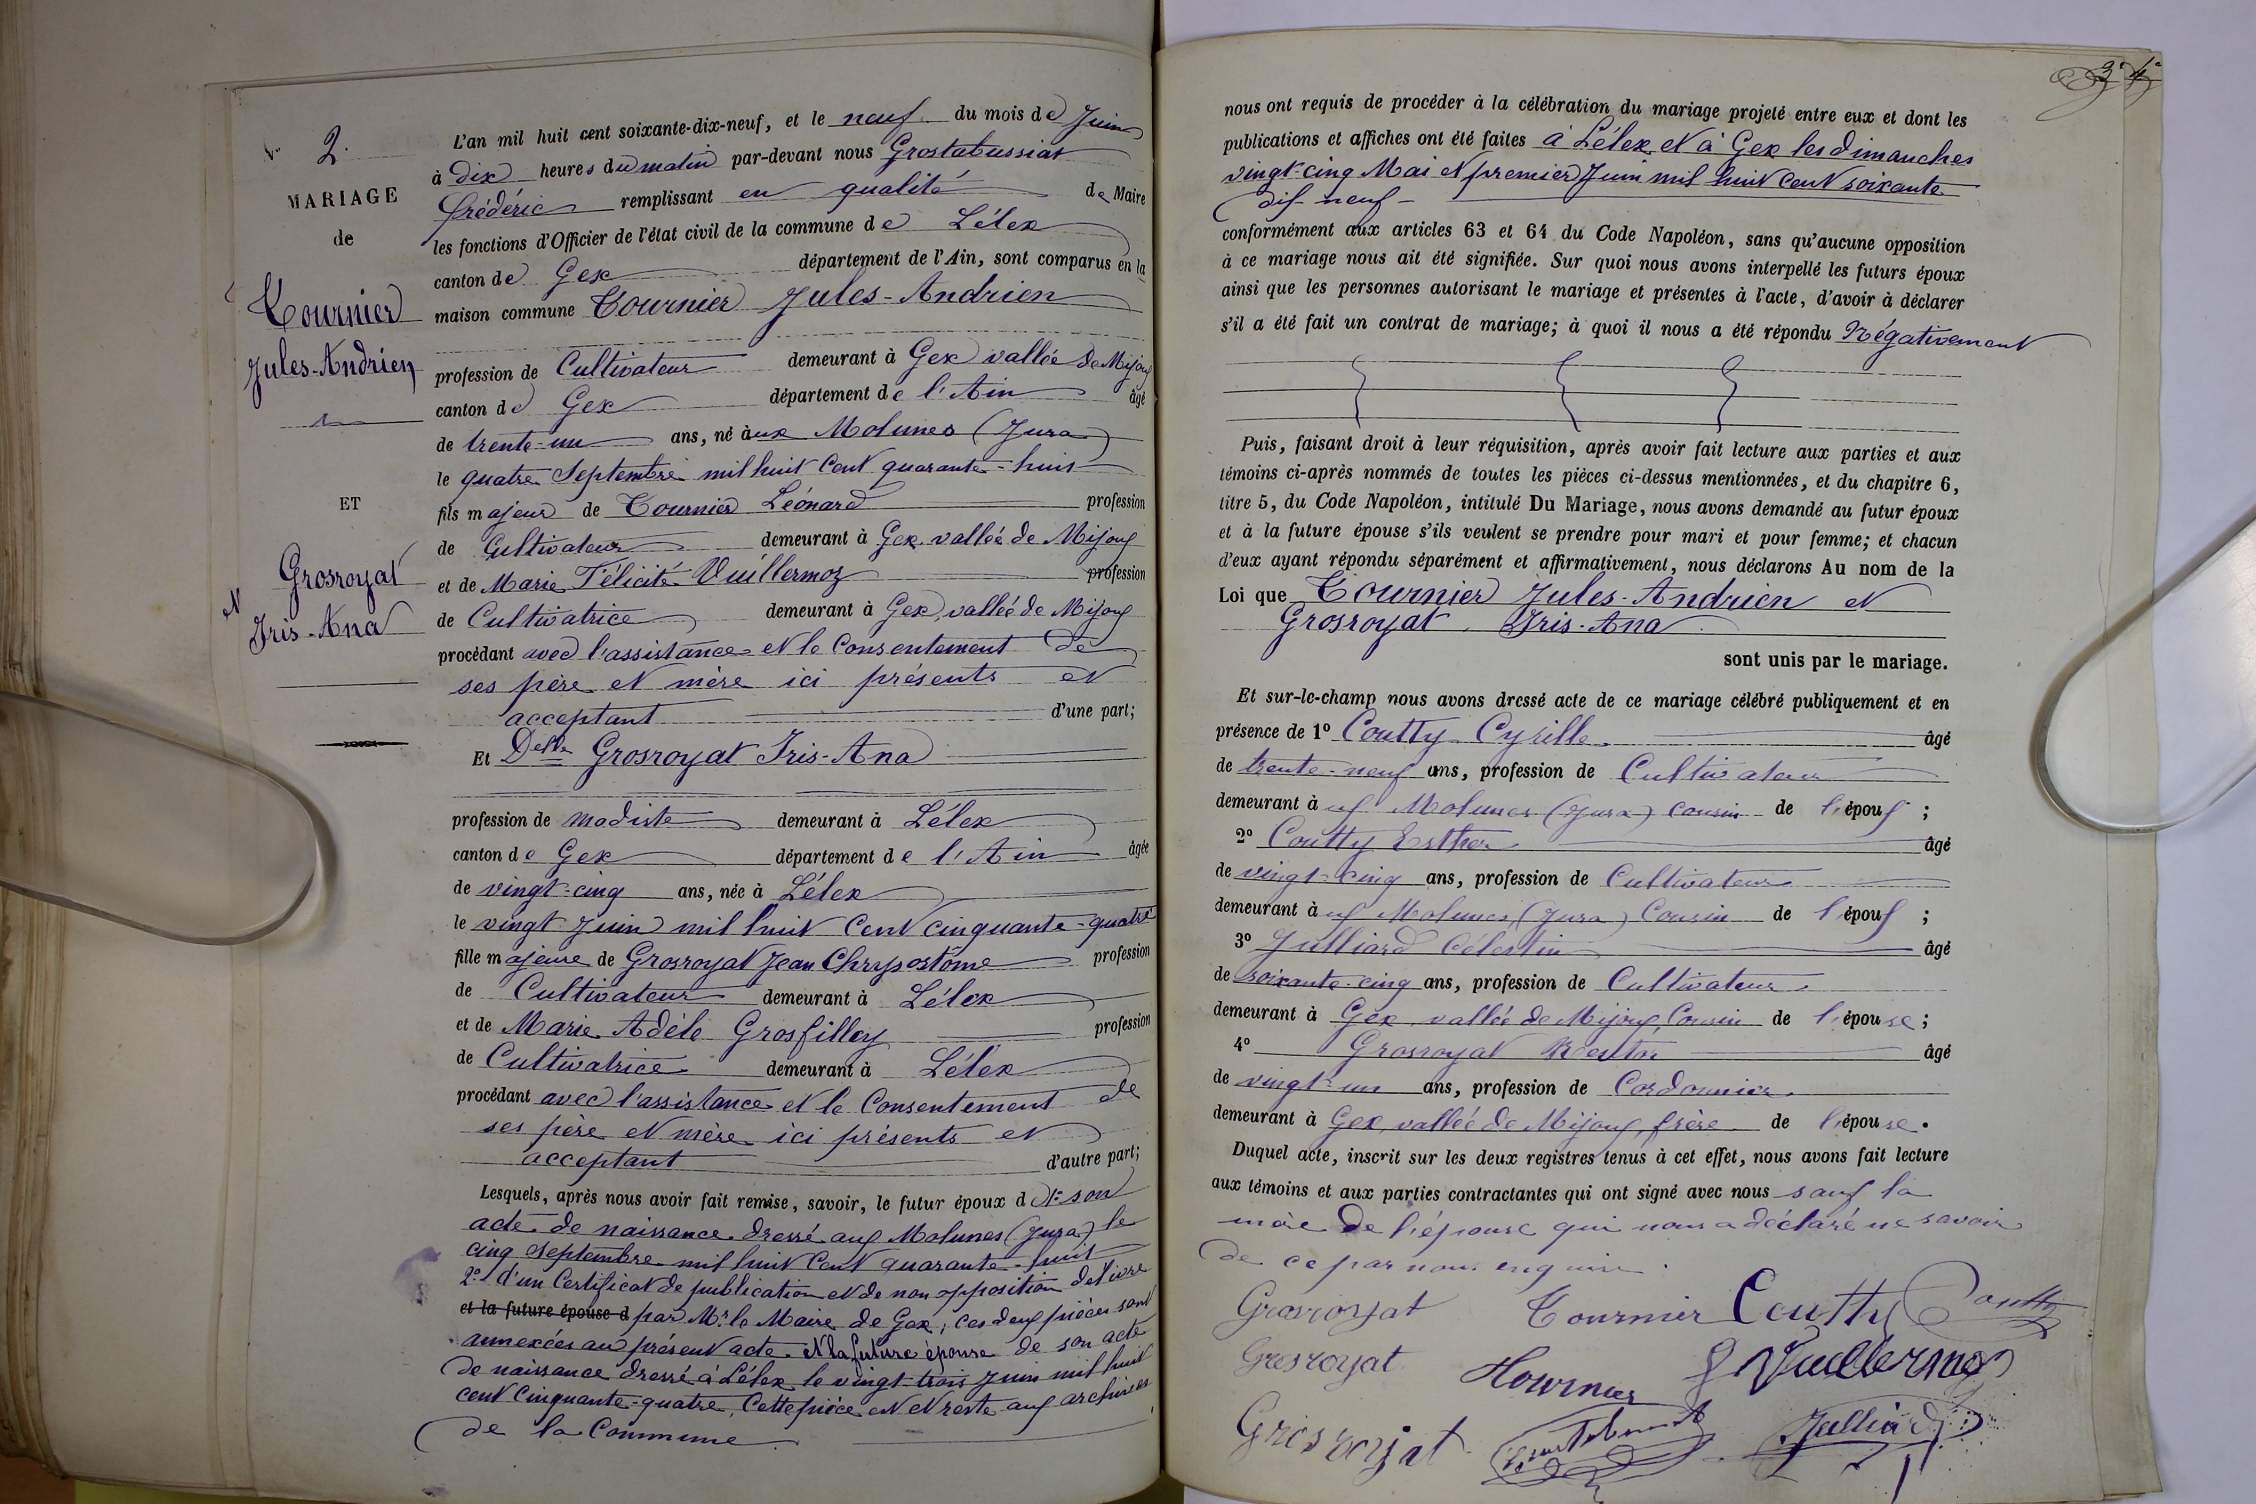 N° 2.
MARIAGE
de
Tournier
Jules-Andrien
ET
Grosroyat
Iris-Ana
L'an mil huit cent soixante-dix-neuf, et le neuf du mois de Juin
à dix heures du matin par-devant nous Grostabussiat
frédéric remplissant en qualité de Maire
les fonctions d'Officier de l'état civil de la commune de Lélex
canton de Gex département de l'Ain, sont comparus en la
maison commune Tournier Jules-Andrien
profession de Cultivateur demeurant à Gex vallée de Mijoux
canton de Gex département de l'Ain âgé
de trente-un ans, né aux Molunes (Jura)
le quatre Septembre mil huit cent quarante-huit
fils majeur de Tournier Léonard profession
de Cultivateur demeurant à Gex vallée de Mijoux
et de Marie Félicité Vuillermoz profession
de Cultivatrice demeurant à Gex, vallée de Mijoux
procédant avec l'assistance et le consentement de
ses père et mère ici présents et
acceptant d'une part;
Et Delle Grosroyat Iris-Ana
profession de modiste demeurant à Lélex
canton de Gex département de l'Ain âgée
de vingt-cinq ans, née à Lélex
le vingt Juin mil huit cent cinquante-quatre
fille majeure de Grosroyat Jean Chrysostôme profession
de Cultivateur demeurant à Lélex
et de Marie Adèle Grosfilley profession
de Cultivatrice demeurant à Lélex
procédant avec l'assistance et le Consentement de
ses père et mère ici présents et
acceptant d'autre part;
Lesquels, après nous avoir fait remise, savoir, le futur époux de 1° son
acte de naissance dressé aux Molunes (Jura) le
cinq Septembre mil huit cent quarante-huit
2° d'un Certificat de publication et de non opposition délivré
et la future épouse d par Mr le Maire de Gex; ces deux pièces sont
annexées au présent acte et la future épouse de son acte
de naissance dressé à Lélex le vingt-trois Juin mil huit
cent cinquante-quatre. Cette pièce est et reste aux archives
de la Commune
3° 4°
nous ont requis de procéder à la célébration du mariage projeté entre eux et dont les
publications et affiches ont été faites à Lélex et à Gex les dimanches
vingt-cinq Mai et premier Juin mil huit cent soixante
dix neuf
conformément aux articles 63 et 64 du Code Napoléon, sans qu'aucune opposition
à ce mariage nous ait été signifiée. Sur quoi nous avons interpellé les futurs époux
ainsi que les personnes autorisant le mariage et présentes à l'acte, d'avoir à déclarer
s'il a été fait un contrat de mariage; à quoi il nous a été répondu Négativement
Puis, faisant droit à leur réquisition, après avoir fait lecture aux parties et aux
témoins ci-après nommés de toutes les pièces ci-dessus mentionnées, et du chapitre 6,
titre 5, du Code Napoléon, intitulé Du Mariage, nous avons demandé au futur époux
et à la future épouse s'ils veulent se prendre pour mari et pour femme; et chacun
d'eux ayant répondu séparément et affirmativement, nous déclarons Au nom de la
Loi que Tournier Jules-Andrien et
Grosroyat Iris-Ana
sont unis par le mariage.
Et sur-le-champ nous avons dressé acte de ce mariage célébré publiquement et en
présence de 1° Coutty Cyrille âgé
de trente-neuf ans, profession de Cultivateur
demeurant à ux Molunes (Jura) cousin de l'époux;
2° Coutty Esther âgé
de vingt-cinq ans, profession de Cultivateur
demeurant à ux Molunes (Jura) Cousin de l'époux;
3° Julliard Célestin âgé
de soixante-cinq ans, profession de Cultivateur
demeurant à Gex vallée de Mijoux, Cousin de l'épouse;
4° Grosroyat âgé
de vingt-un ans, profession de Cordonnier
demeurant à Gex, vallée de Mijoux, frère de l'épouse.
Duquel acte, inscrit sur les deux registres tenus à cet effet, nous avons fait lecture
aux témoins et aux parties contractantes qui ont signé avec nous sauf la
mère de l'épouse qui nous a déclaré ne savoir
de ce par nous enquise.
Grosroyat Tournier Coutty Coutty
Grosroyat Tournier Vuillermoz
Grosroyat Julliard